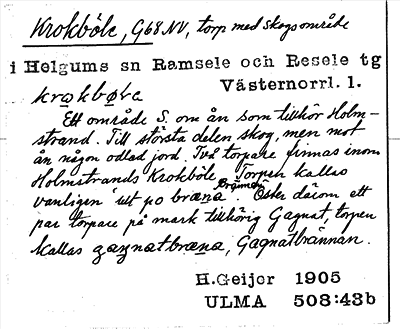 Krokböle, G68NV, torp med skogsområde
i Helgums sn Ramsele och Resele tg
krokbøle Västernorrl. l.
Ett område S. om ån som tillhör Holm-
strand. Till största delen skog, men mot
ån någon odlad jord. Två torpare finnas inom
Holmstrands Krokböle. Torpen kallas
vanligen ut po bræna. Öster därom ett
par torpare på mark tillhörig Gagnat, torpen
kallas gagnatbræna, Gagnatbrännan.
H.Geijer 1905
ULMA 508:43b